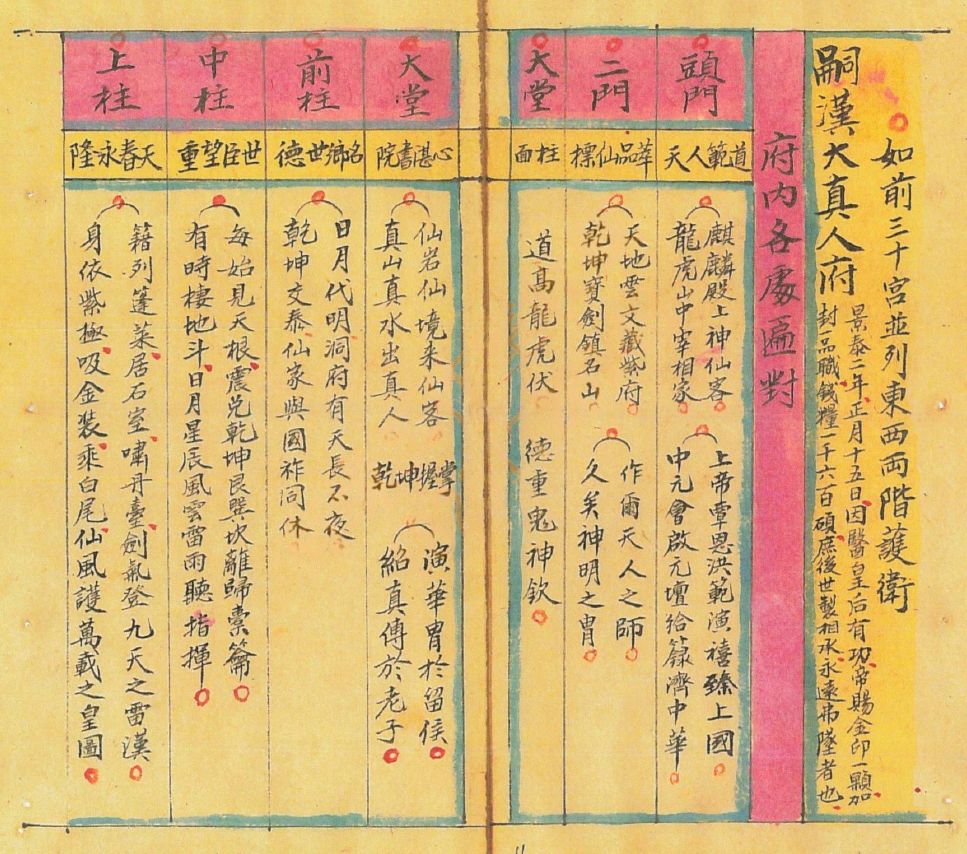 如前三十宮並列東西兩階護衛
嗣漢大真人府
景泰二年正月十五日因醫皇后有功帝賜金印一顆加
封品職錢糧一千六百碩庶後世製相承永遠弗墜者也
府内各處匾對
頭門
道範人天
麒麟殿上神仙客
龍虎山中宰相家
上帝覃恩洪範演禧臻上國
中元會啟元壇給籙濟中華
二門
華品仙標
天地雲文藏紫府
乾坤寶劍鎮名山
作爾天人之師
久矣神明之冑
大堂
柱面
道高龍虎伏
德重鬼神欽
大堂
心湛書院
仙岩仙境来仙客
真山真水出真人
掌握坤乾
演華冑於留侯
紹真傳於老子
前柱
名鄉世德
日月代明洞府有天長不夜
乾坤交泰仙家與國祚同休
中柱
世臣望重
每始見天根震兑乾坤艮巽坎離歸橐籥
有時棲地斗日月星辰風雲雷雨聽指揮
上柱
天春永隆
籍列蓬萊居石室嘯丹臺劍氣登九天之雷漢
身依紫極吸金装乘白尾仙風護萬載之皇圖